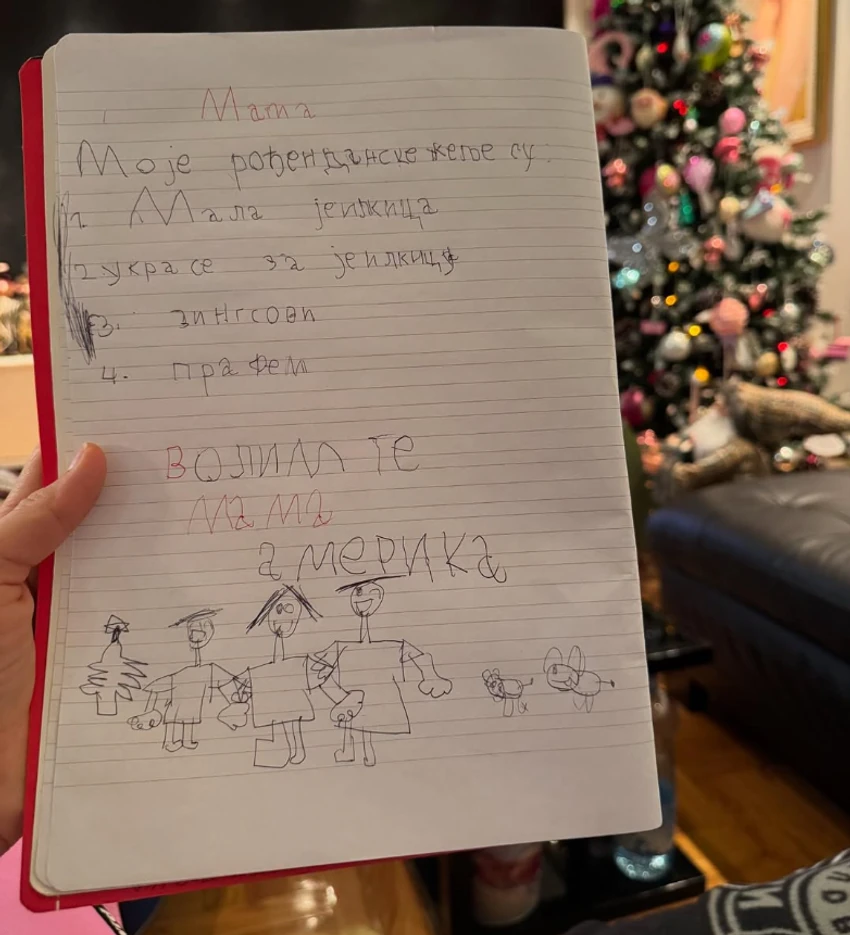 Мама
Моје рођенданске жеље су:
1 Мала јеилкица
2 украсе за јеилкицу
3. зингсови
4. прафем
ВОЛИМ ТЕ
МаМа
америка